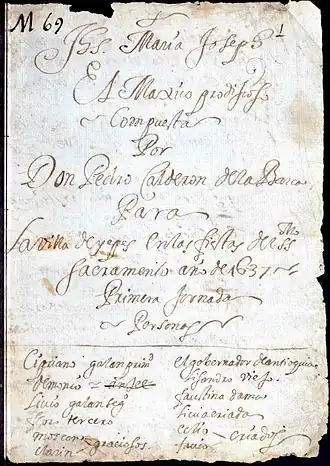 M 69
Jhs Maria Joseph 1
El Maxico prodigioso
Compuesta
Por
Don Pedro Calderon de la Barca
Para
La villa de yepes en las fiestas del SSmo
Sacramento año de 1637
Primera Jornada
Personas
Cipriano galan primo
Demonio
Livio galan sego
flor tercero
moscon
clarin graciosos
el gobernador de antioquia
lisandro viejo
faustina dama
livia criada
celio
favio criados